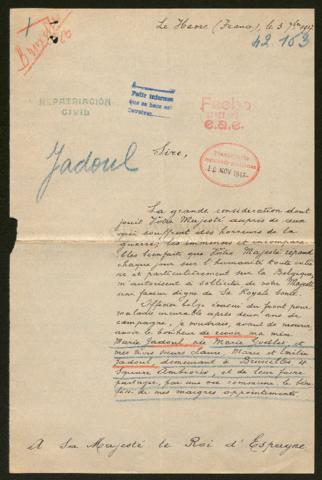 Le Havre (France), le 3 9bre 1917
42.153
Bruxelles
REPATRIACIÓN
CIVIL
Pedir informes
que se hace en
Fecho
e.a.e.
Jadoul
Sire,
10 NOV 1917
La grande considération dont
jouit Votre Majesté auprès de ceux
qui souffrent des horreurs de la
guerre; les immenses et incompara-
bles bienfaits que Votre Majesté répand
chaque jour sur l'humanité toute entiè-
re et particulièrement sur la Belgique,
m'autorisent à solliciter de votre Majesté
une faveur digne de Sa Royale bonté.
Officier belge évacué du front pour
maladie incurable après deux ans de
campagne, je voudrais, avant de mourir,
avoir le bonheur de revoir ma mère
Marie Jadoul, née Marie Goelles, et
mes trois sœurs Laure, Marie et Emilie
Jadoul, demeurant à Bruxelles, 20
Square Ambiorix, et de leur faire
partager, par une vie commune, le béné-
fice de mes maigres appointements.
A Sa Majesté le Roi d'Espagne